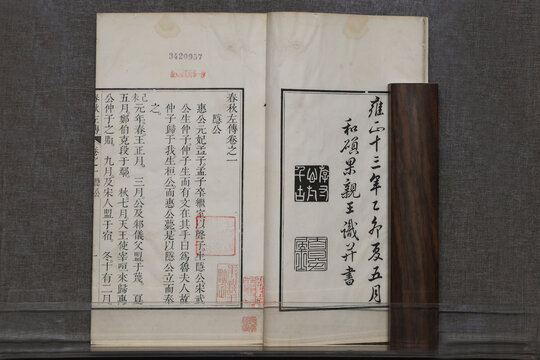 雍正十三年乙卯夏五月
和碩果親王識并書
3420957
春秋左傳卷之一
隱公
惠公元妃孟子孟子卒繼室以聲子生隱公宋武
公生仲子仲子生而有文在其手曰爲魯夫人故
仲子歸于我生桓公而惠公薨是以隱公立而奉
之
元年春王正月三月公及邾儀父盟于蔑夏
五月鄭伯克段于鄢秋七月天王使宰咺來歸惠
公仲子之賵九月及宋人盟于宿冬十有二月
春秋左傳